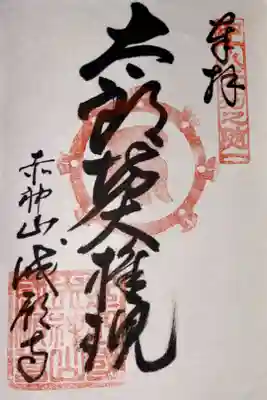 奉拝
太郎坊大権現
赤神山 成願寺